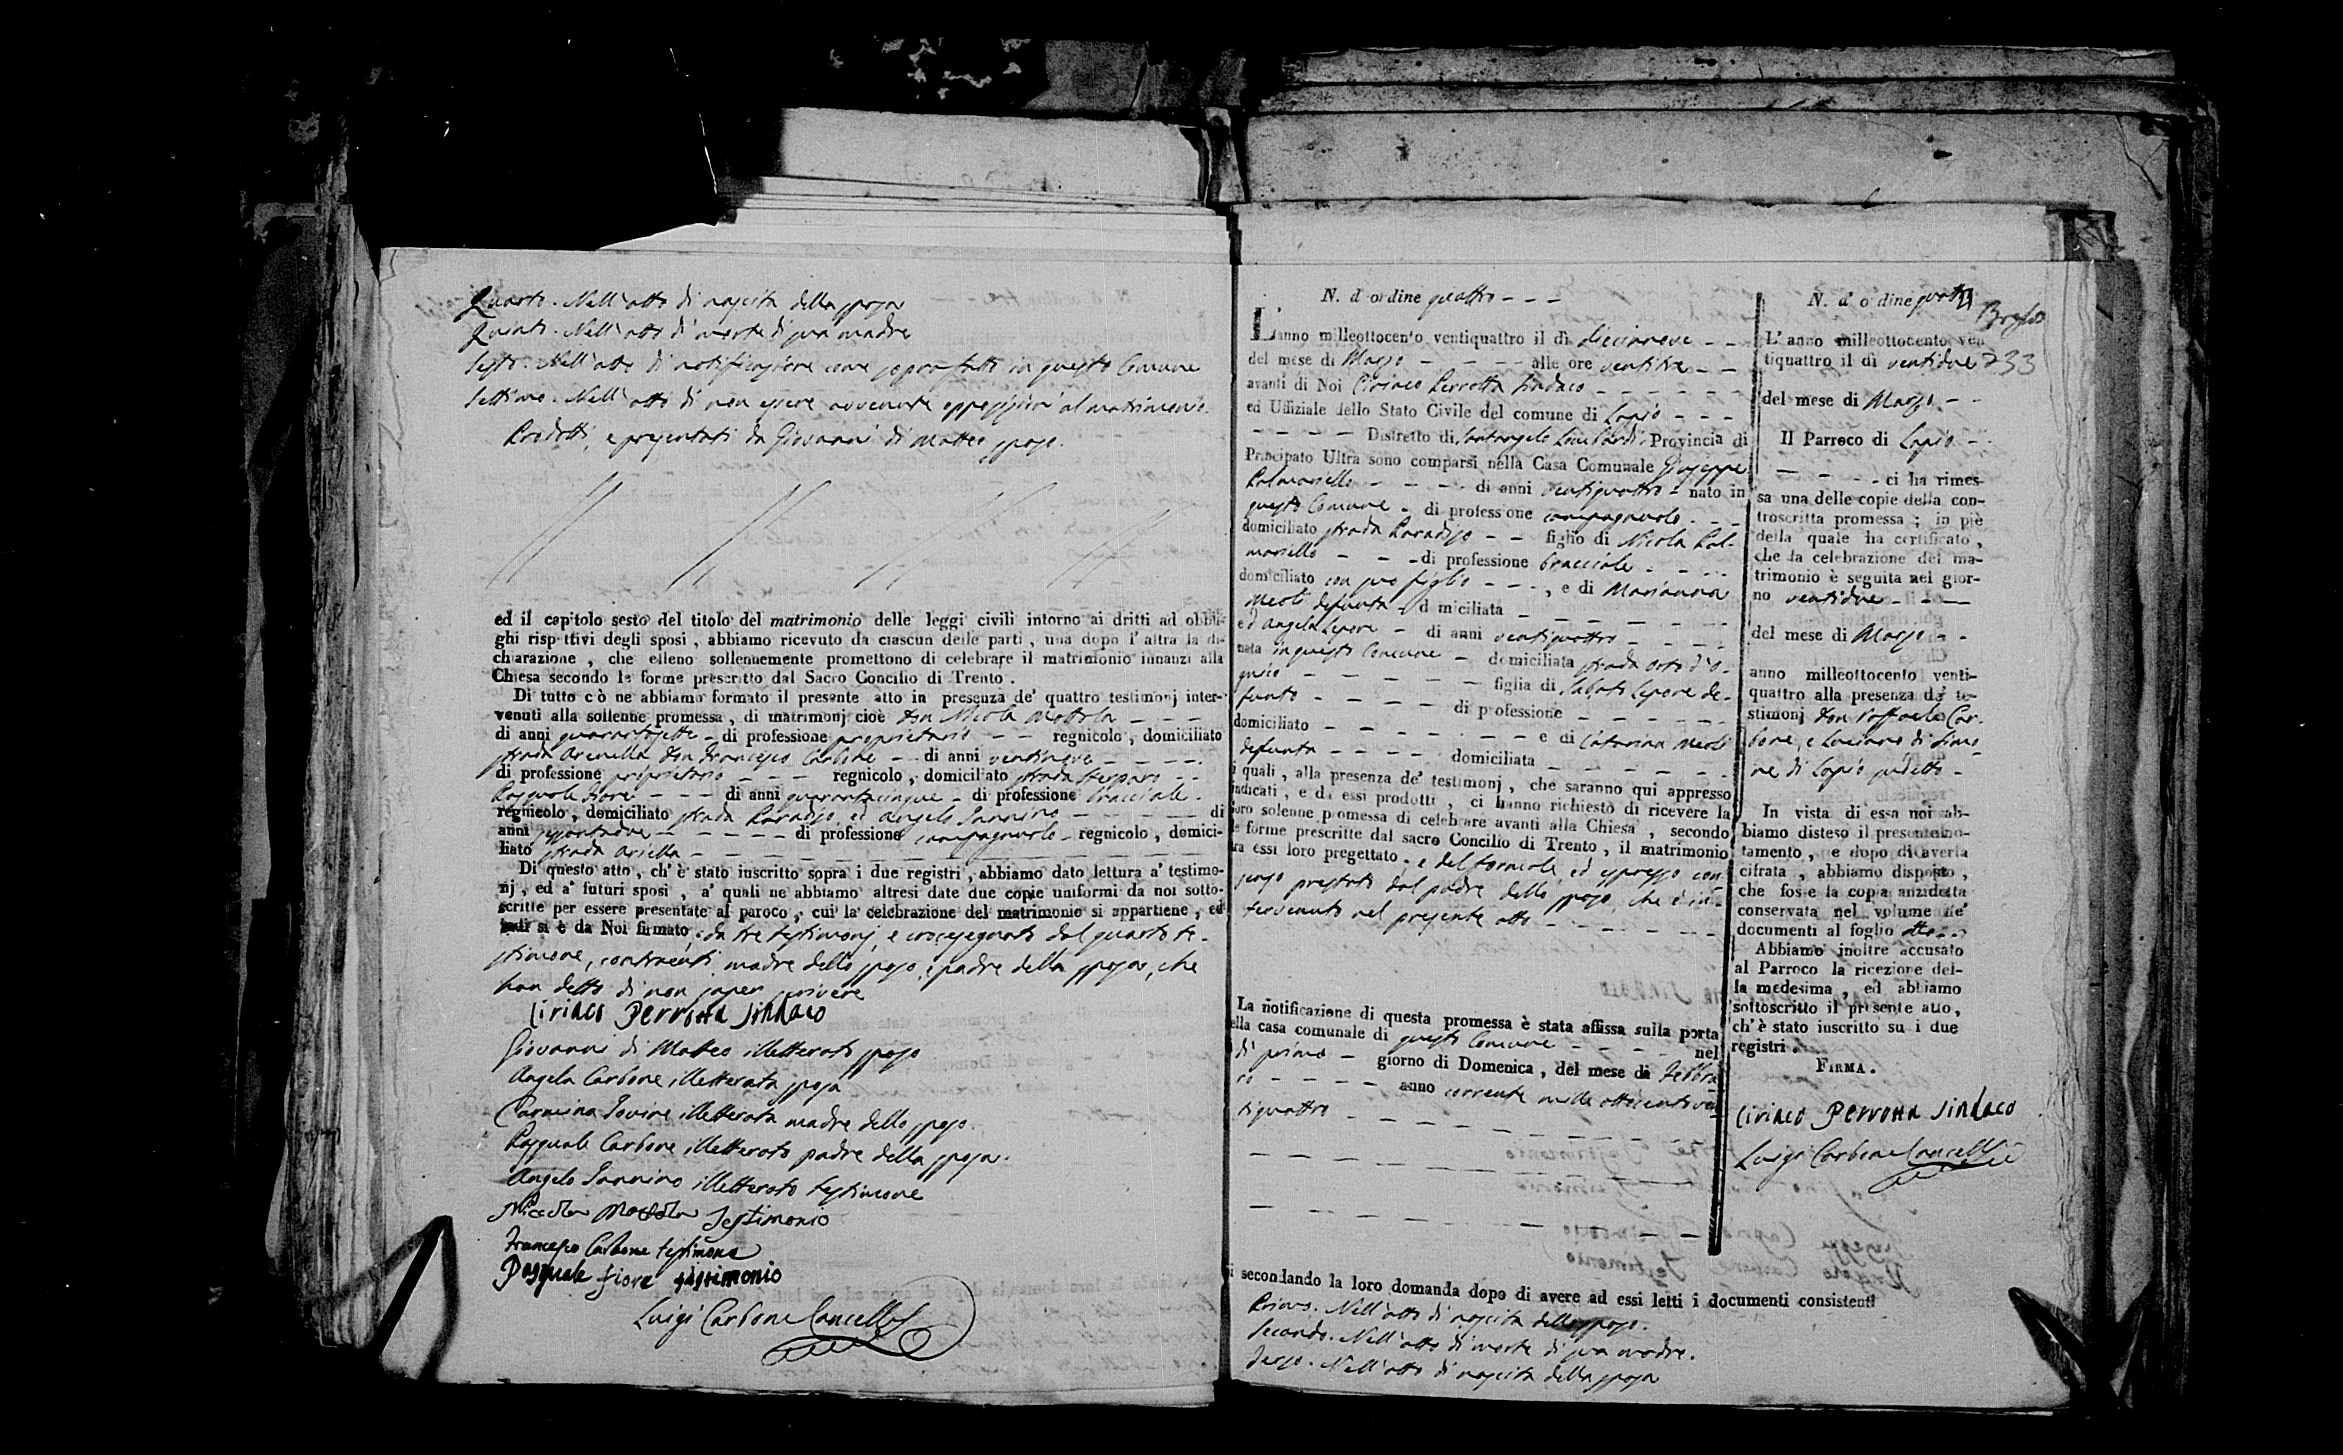 Quarto. Nell'atto di nascita della sposa
Quinto. Nell'atto di morte di sua madre
Sesto. Nell'atto di notificazione come sopra fatti in questo Comune
Settimo. Nell'atto di non essere avvenute opposizioni al matrimonio.
Prodotti, e presentati da Giovanni di Matteo sposo.
ed il capitolo sesto del titolo del matrimonio delle leggi civili intorno ai dritti ad obbli-
ghi rispettivi degli sposi, abbiamo ricevuto da ciascun delle parti, una dopo l'altra la di-
chiarazione, che elleno sollennemente promettono di celebrare il matrimonio innanzi alla
Chiesa secondo le forme prescritto dal Sacro Concilio di Trento.
Di tutto ciò ne abbiamo formato il presente atto in presenza de' quattro testimonj inter-
venuti alla sollenne promessa, di matrimonj cioè don Nicola Mottola
di anni quarantasette di professione proprietario regnicolo, domiciliato
strada Arenella don Francesco Carbone di anni ventinove
di professione proprietario regnicolo, domiciliato strada
Pasquale Fiore di anni quarantacinque di professione bracciale
regnicolo, domiciliato strada Paradiso, ed Angelo Iannino di
anni sessantadue di professione campagnuolo regnicolo, domici-
liato strada Ariella
Di questo atto, ch'è stato inscritto sopra i due registri, abbiamo dato lettura a' testimo-
nj, ed a' futuri sposi, a' quali ne abbiamo altresi date due copie uniformi da noi sotto-
scritte per essere presentate al paroco, cui la celebrazione del matrimonio si appartiene, ed
indi si è da Noi firmato, da tre testimonj, e crocesegnato dal quarto te-
stimone, contraenti, madre dello sposo, e padre della sposa, che
han detto di non saper scrivere
Ciriaco Perrotta Sindaco
Giovanni di Matteo illetterato sposo
Angela Carbone illetterata sposa
Carmina Iovine illetterata madre dello sposo.
Pasquale Carbone illetterato padre della sposa.
Angelo Iannino illetterato testimone
Niccola Mottola Testimonio
Francesco Carbone testimone
Pasquale Fiore testimonio
Luigi Carbone Cancell
N. d'ordine quattro
L'anno milleottocento ventiquattro il dì diciannove
del mese di Marzo alle ore ventitre
avanti di Noi Ciriaco Perrotta Sindaco
ed Uffiziale dello Stato Civile del comune di Lapio
Distretto di Santangelo Lombardi Provincia di
Principato Ultra sono comparsi nella Casa Comunale Giuseppe
Palmariello di anni ventiquattro nato in
questo Comune di professione campagnuolo
domiciliato strada Paradiso figlio di Nicola Pal-
mariello di professione bracciale
domiciliato con suo figlio, e di Marianna
Meoli defunta domiciliata
ed Angela Lepore di anni ventiquattro
nata in questo Comune domiciliata strada Orto d'O-
figlia di Sabato Lepore de-
funto di professione
domiciliato e di Catarina Meoli
defunta domiciliata
i quali, alla presenza de' testimonj, che saranno qui appresso
indicati, e da essi prodotti, ci hanno richiesto di ricevere la
loro solenne promessa di celebrare avanti alla Chiesa, secondo
le forme prescritte dal sacro Concilio di Trento, il matrimonio
tra essi loro progettato, e del formale, ed espresso con-
senso prestato dal padre dello sposo, che è in-
tervenuto nel presente atto
La notificazione di questa promessa è stata affissa sulla porta
della casa comunale di questo Comune nel
dì primo giorno di Domenica, del mese di Febbra
ro anno corrente mille ottocento ven
tiquattro
i secondando la loro domanda dopo di avere ad essi letti i documenti consistenti
Primo. Nell'atto di nascita dello sposo.
Secondo. Nell'atto di morte di sua madre.
Terzo. Nell'atto di nascita della sposa
N. d'ordine quattro
L'anno milleottocento ven
tiquattro il dì ventidue 233
del mese di Marzo
Il Parroco di Lapio
ci ha rimes-
sa una delle copie della con-
troscritta promessa; in piè
della quale ha certificato,
che la celebrazione del ma-
trimonio è seguita nel gior-
no ventidue
del mese di Marzo
anno milleottocento venti-
quattro alla presenza da' te-
stimonj don Raffaele Car-
bone, e Luciano di Simo-
ne di Lapio sudetto
In vista di essa noi ab-
biamo disteso il presente no-
tamento, e dopo di averla
cifrata, abbiamo disposto,
che fosse la copia anzidetta
conservata nel volume de'
documenti al foglio otto
Abbiamo inoltre accusato
al Parroco la ricezione del-
la medesima, ed abbiamo
sottoscritto il presente atto,
ch'è stato inscritto su i due
registri.
FIRMA.
Ciriaco Perrotta Sindaco
Luigi Carbone Cancell